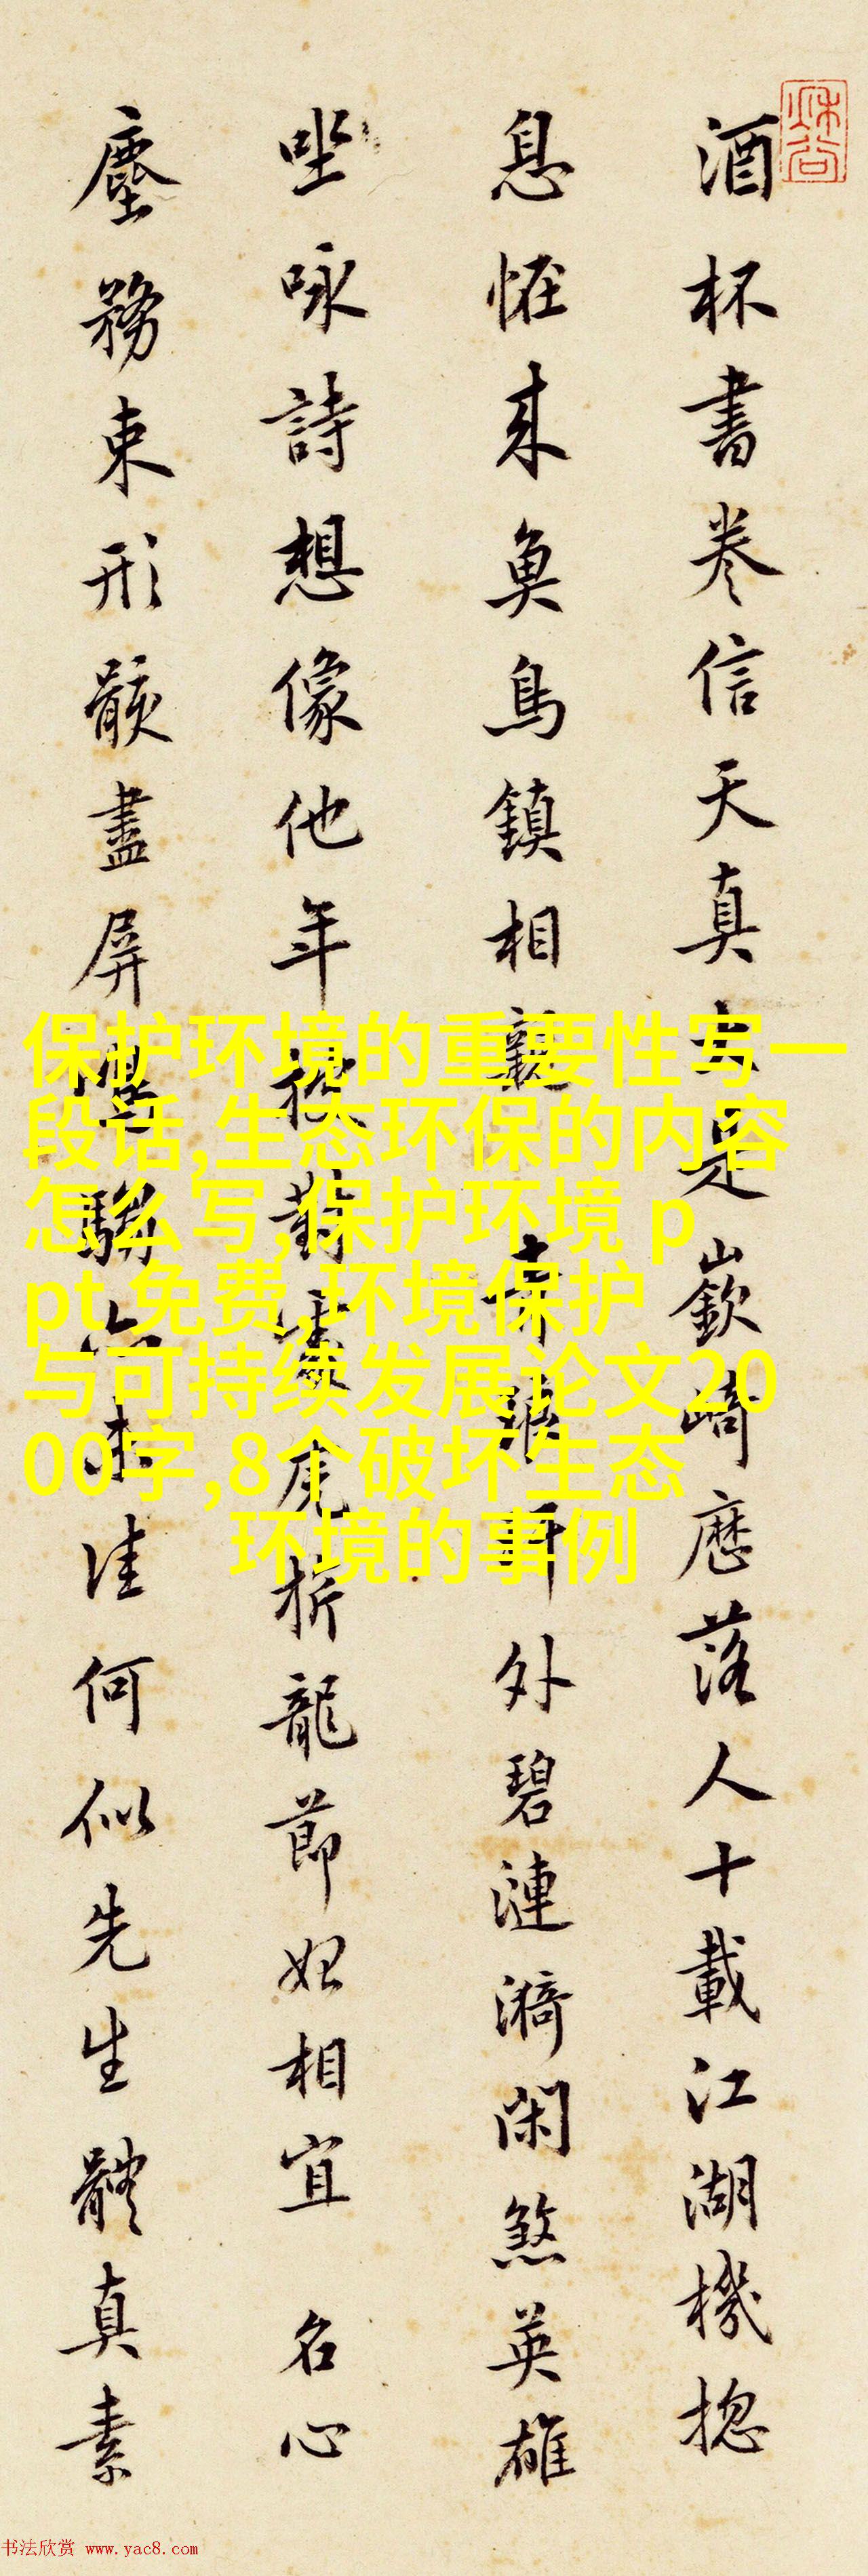 酒杯書卷信天真是嶔崎厯落人十載江湖機揔
息恠来魚鳥鎮相親軒外碧漣漪閑煞英雄
坐咏詩想像他年折龍節相宜 名心
塵務束形骸盡屏佳何似先生體真素
保护环境的重要性写一
段话,生态环保的内容
怎么写,保护环境 p
pt 免费,环境保护
与可持续发展论文20
00字,8个破坏生态
环境的事例
书法欣赏 www.yac8.com